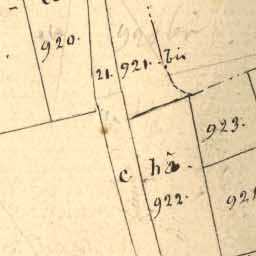 920.
21. 921. bis
923.
c hâ
922.